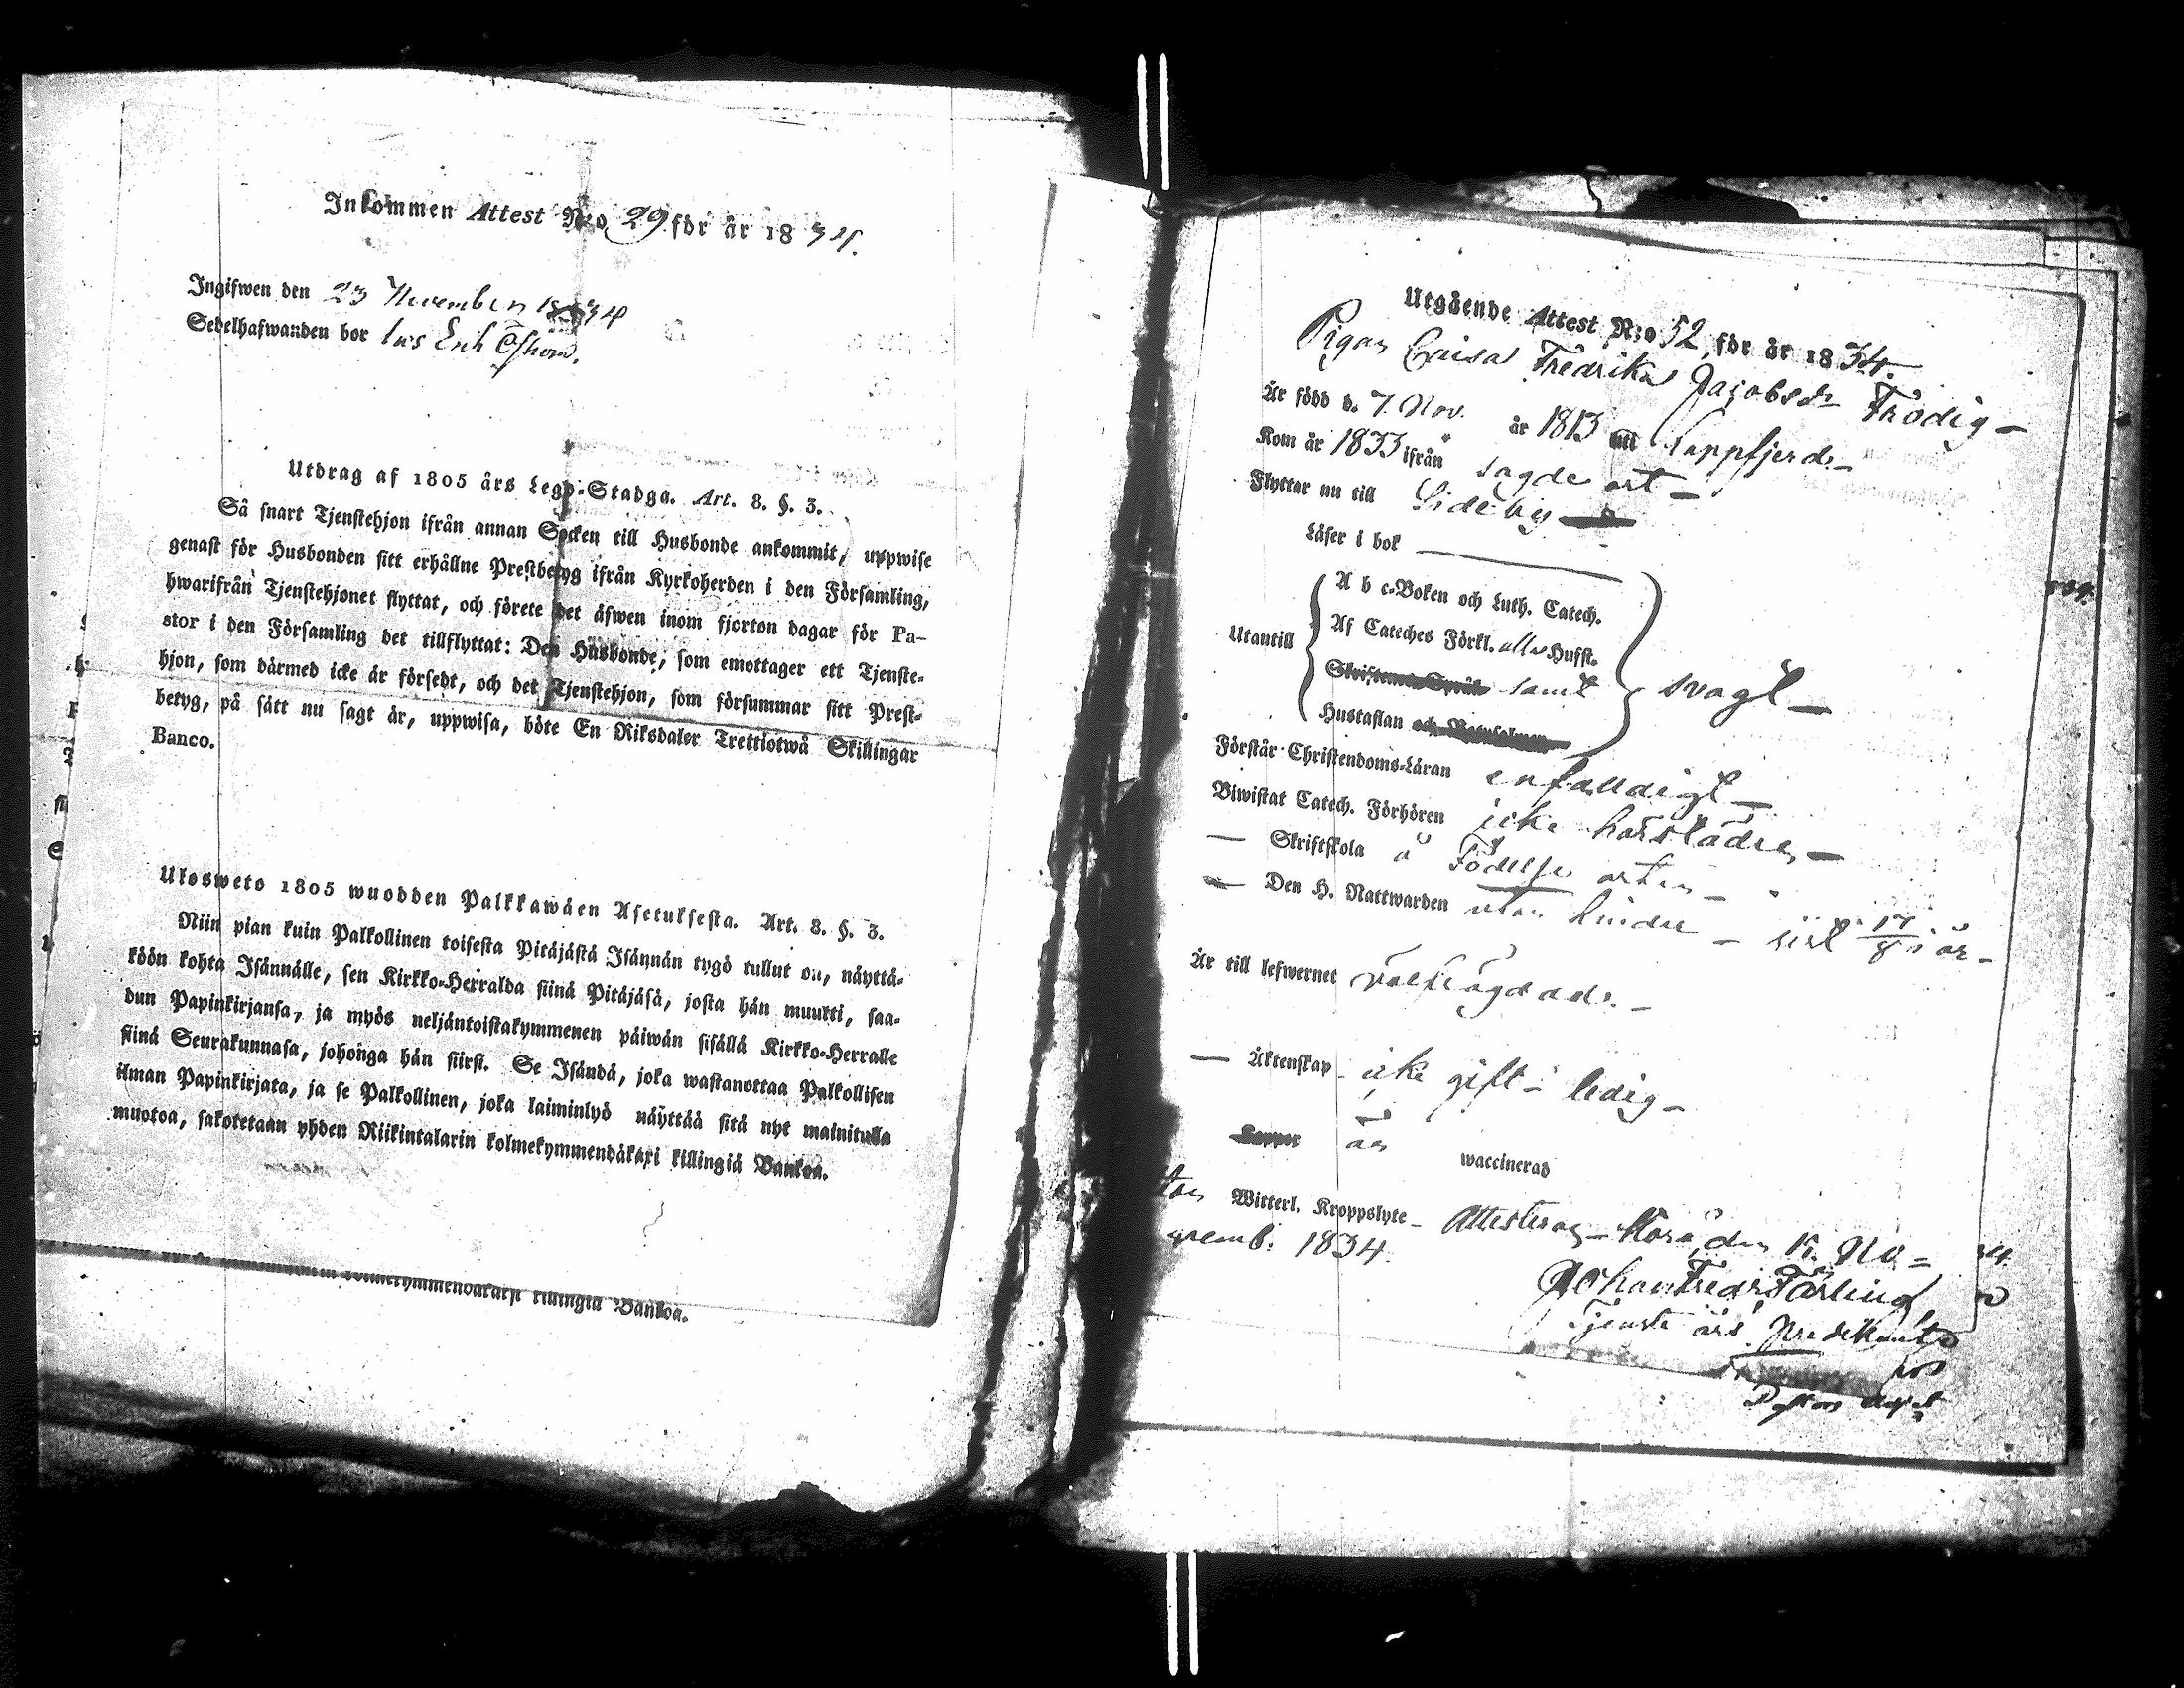 Inkommen Attest N:o 29 för år 1834.
Ingifwen den 23 November 1834
Sedelhafwanden bor hos Erik
Utdrag af 1805 års Lego-Stadga. Art. 8. §. 3.
Så snart Tjenstehjon ifrån annan Socken till Husbonde ankommit, uppwise
genast för Husbonden sitt erhållne Prestbetyg ifrån Kyrkoherden i den Församling,
hwarifrån Tjenstehjonet flyttat, och förete det äfwen inom fjorton dagar för Pa-
stor i den Församling det tillflyttat: Den Husbonde, som emottager ett Tjenste-
hjon, som därmed icke är försedt, och det Tjenstehjon, som försummar sitt Prest-
betyg, på sätt nu sagt är, uppwisa, böte En Riksdaler Trettiotwå Skillingar
Banco.
Ulosweto 1805 wuodden Palkkawäen Asetuksesta. Art. 8. §. 3.
Niin pian kuin Palkollinen toisesta Pitäjästä Isännän tygö tullut on, näyttä-
köön kohta Isännälle, sen Kirkko-Herralda siinä Pitäjäsä, josta hän muutti, saa-
dun Papinkirjansa, ja myös neljäntoistakymmenen päiwän sisällä Kirkko-Herralle
siinä Seurakunnasa, johonga hän siirst. Se Isändä, joka wastanottaa Palkollisen
ilman Papinkirjata, ja se Palkollinen, joka laiminlyö näyttää sitä nyt mainitulla
muotoa, sakotetaan yhden Riikintalarin kolmekymmendäkaxi killingiä Bankoa.
killingiä Bankoa.
Utgående Attest N:o 52 för år 1834.
Pigan Caisa Fredrika Jacobsdr Frödig –
Är född d. 7 Nov. år 1813 i Lappfjerd –
Kom år 1833 ifrån sagde ort –
Flyttar nu till Sideby
Läser i bok
A b c-Boken och Luth. Catech.
Af Cateches Förkl. alla Hufst.
Utantill
Skriftenes Språk samt svagt –
Hustaflan och Botpsalmen
Förstår Christendoms-Läran enfaldigt –
Biwistat Catech. Förhören icke härstädes –
— Skriftskola å Födelse orten –
— Den H. Nattwarden utan hinder – sist 17/8 i år –
Är till lefwernet välfrägdad. –
— Äktenskap icke gift – ledig –
Koppor är waccinerad
Witterl. Kroppslyte – Attesteras – Korsnäs den 15 No=
vemb. 1834.
Johan Fredr
Tjenste års Predikant